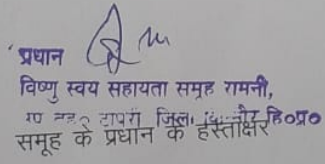 प्रधान
विष्णु स्वय सहायता समूह रामनी,
टापरी जिला हि०प्र०
समूह के प्रधान के हस्ताक्षर